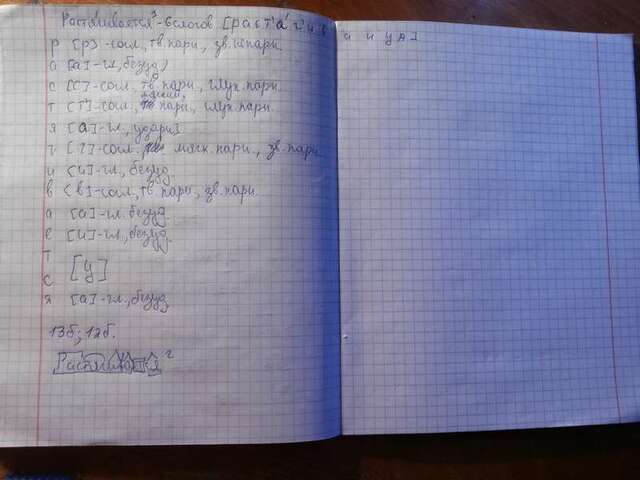 Растягивается³ - 6 слогов [раст'а́г'ив
а и ц а]
р [р] - согл., тв. парн., зв. непарн.
а [а] - гл., безуд.
с [с] - согл., тв. парн., глух. парн.
т [т'] - согл., мягк. парн., глух. парн.
я [а] - гл., ударн.
г [г'] - согл., мягк. парн., зв. парн.
и [и] - гл., безуд.
в [в] - согл., тв. парн., зв. парн.
а [а] - гл. безуд.
е [и] - гл., безуд.
т
с [ц]
я [а] - гл., безуд.
13б; 12б.